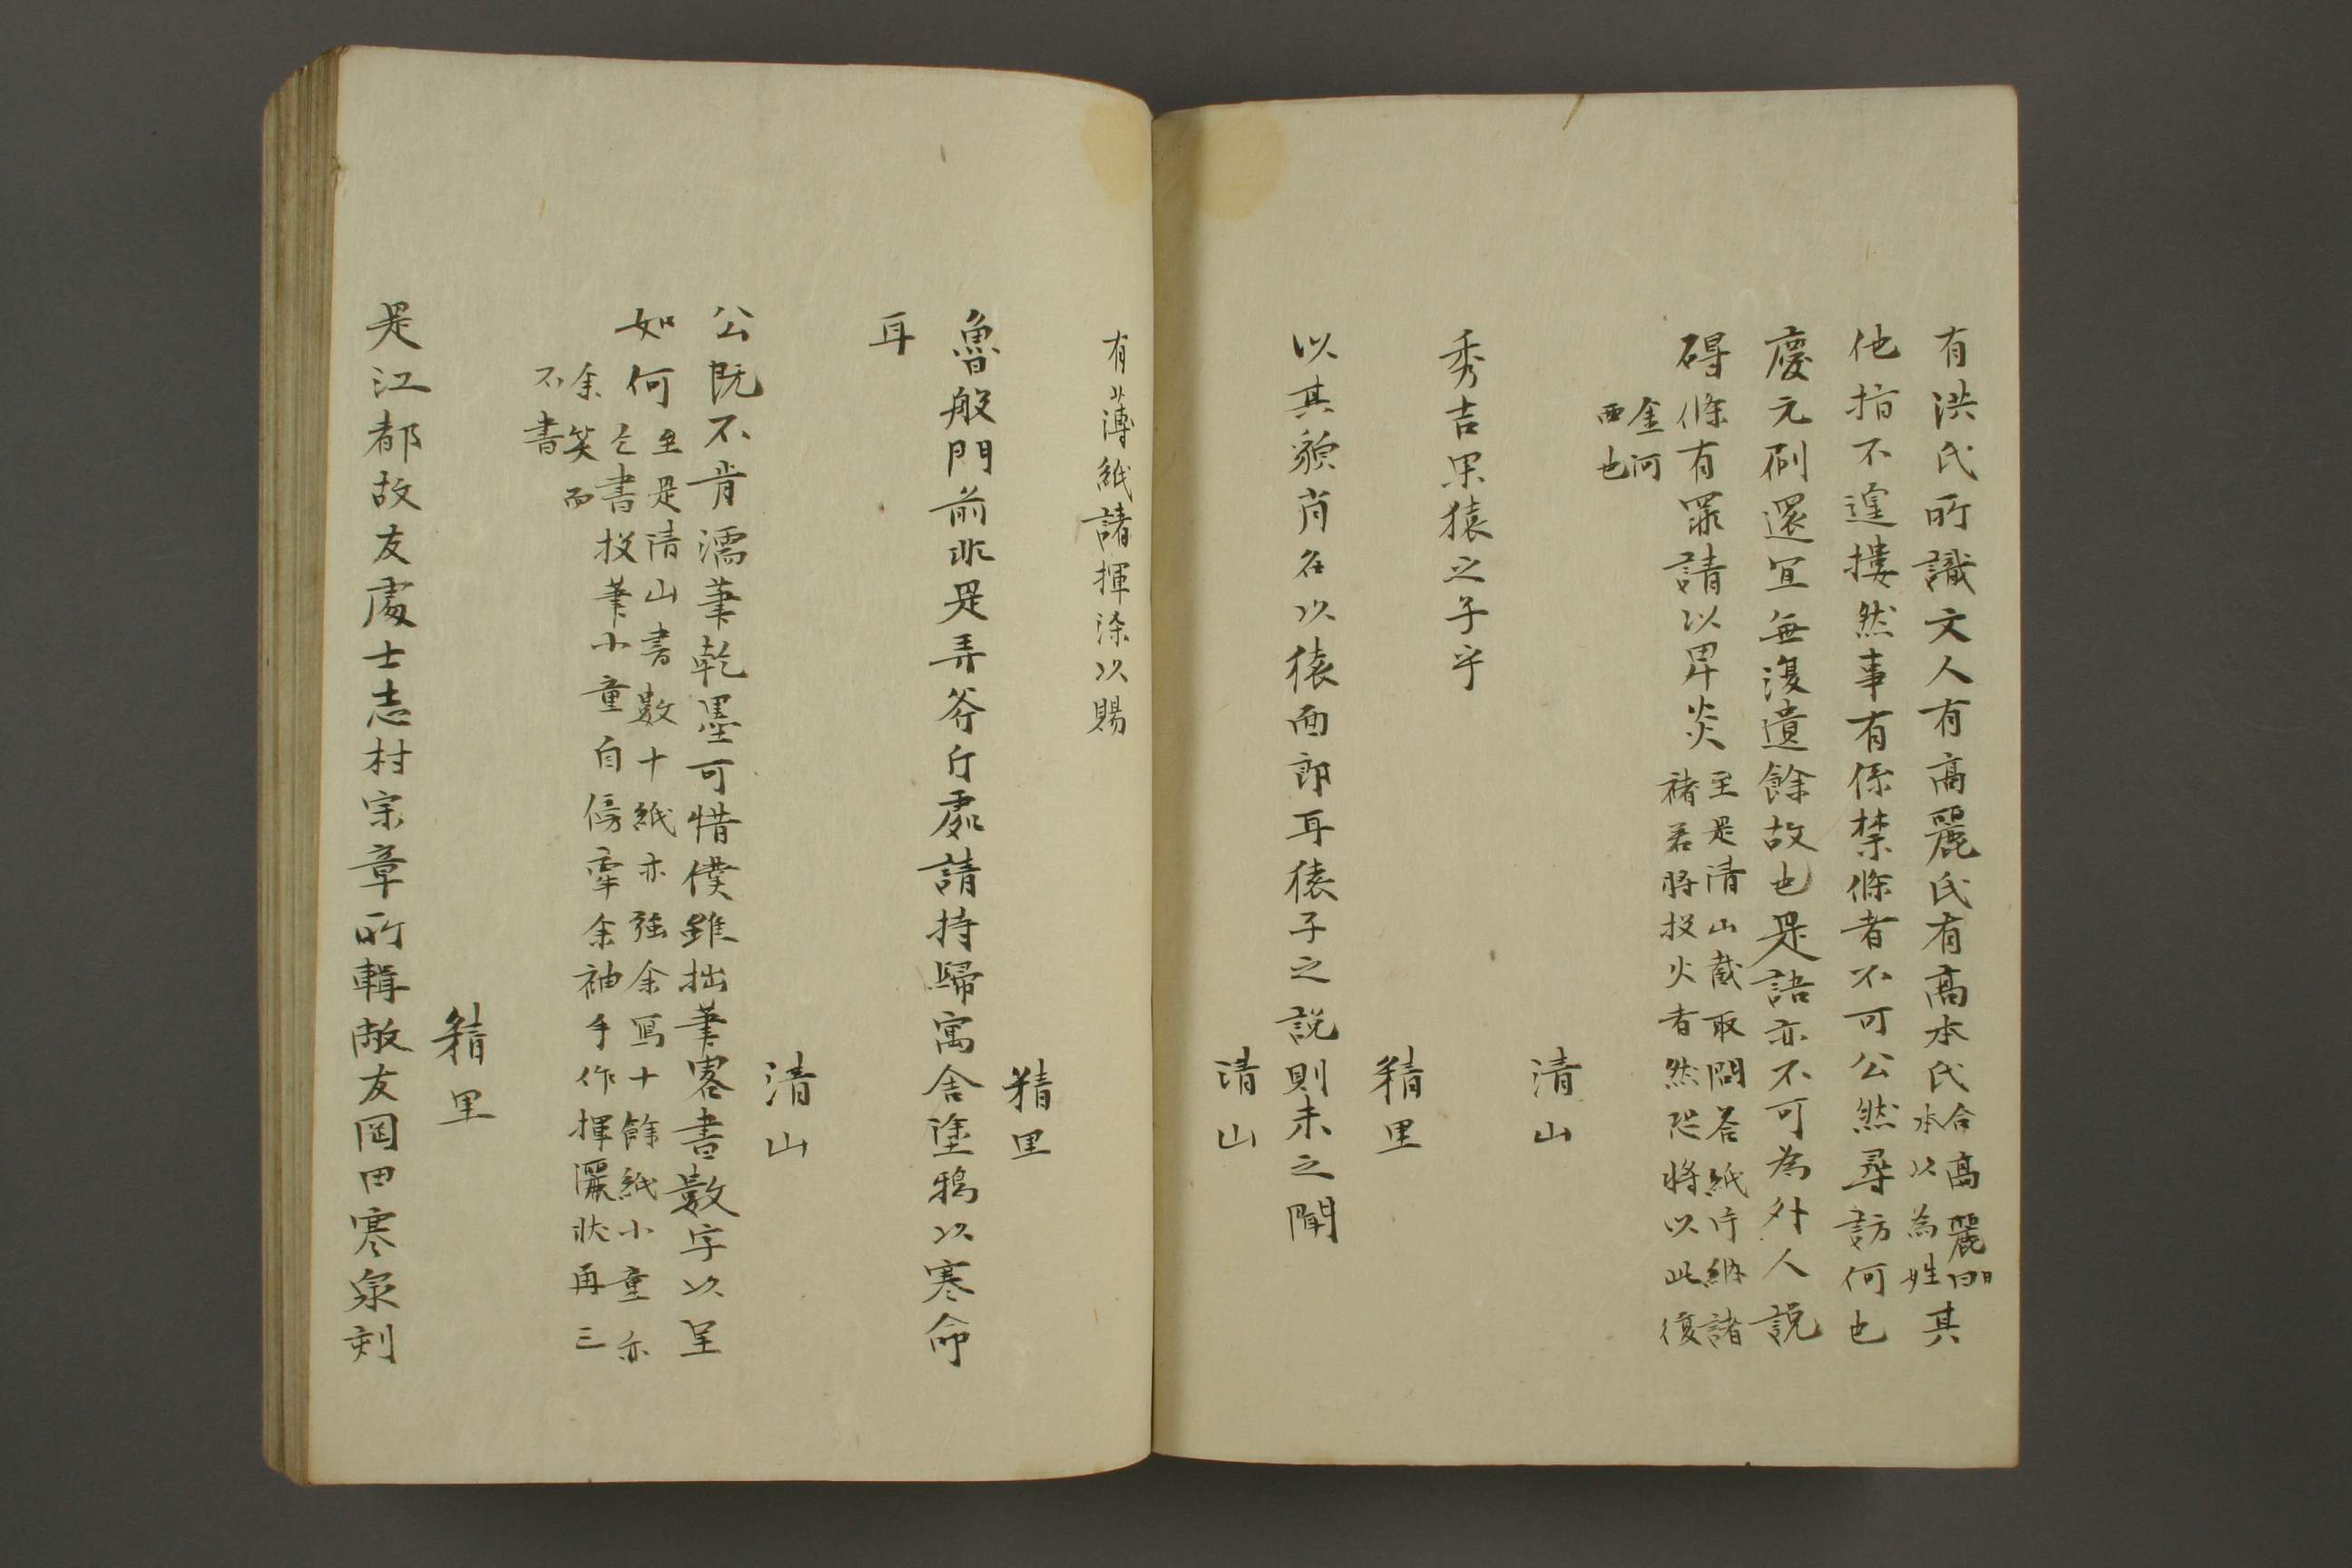 有洪氏所識文人有高麗氏有高本氏合高麗
本以為姓其
他指不遑摟然事有係禁條者不可公然尋訪何也
慶元刷還宜無復遺餘故也是語亦不可為外人説
碍條有罪請以畀炎至是清山藏取問答紙片納諸
褚若將投火者然恐將以此復
金河
西也
清山
秀吉果猿之子乎
精里
以其貌肖名以猿面郎耳猿子之説則未之聞
清山
有薄紙諸揮染以賜
精里
魯般門前非是弄斧斤處請持歸寓舍塗鴉以塞命
耳
清山
公既不肯濡筆乾墨可惜僕雖拙筆畧書數字以呈
如何至是清山書數十紙亦強余寫十餘紙小童亦
乞書投筆小童自傍牽余袖手作揮灑狀再三
余笑而
不書
精里
是江都故友處士志村宗章所輯敝友岡田寒泉刻